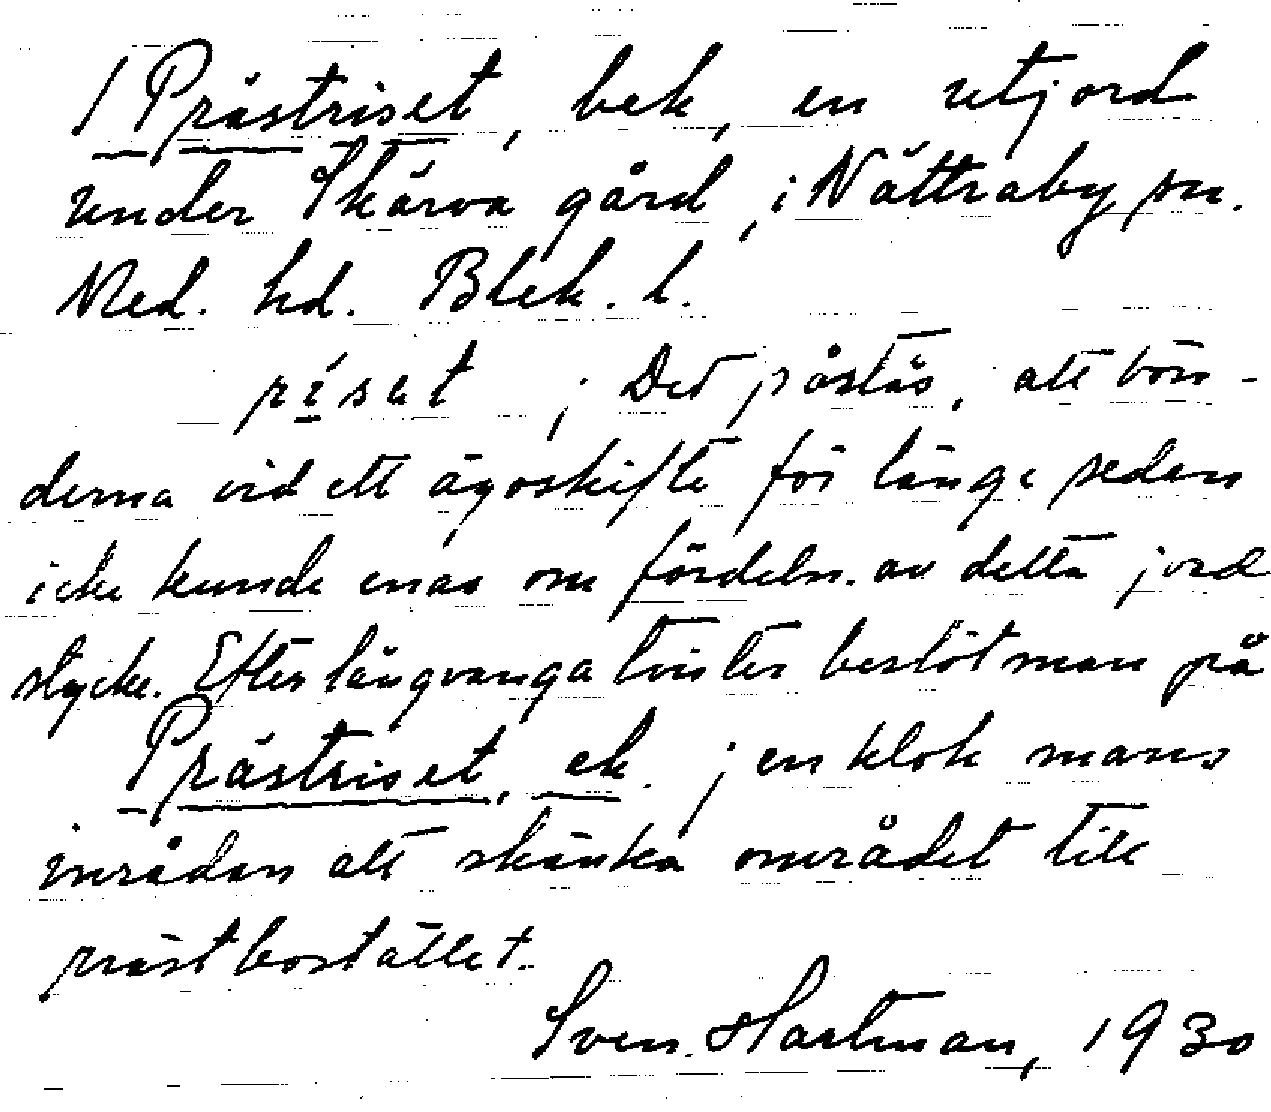 / Prästriset, bek, en utjord
under Skärva gård, i Nättraby sn.
Med. hd. Blek. l.
riset ; Det påstås, att bön-
derna vid ett ägoskifte för länge sedan
icke kunde enas om fördeln. av detta jord
stycke. Efter långvariga tvister beslöt man på
Prästriset, ek. ; en klok mans
inrådan att skänka området till
prästbostället.
Sven Hartman, 1930